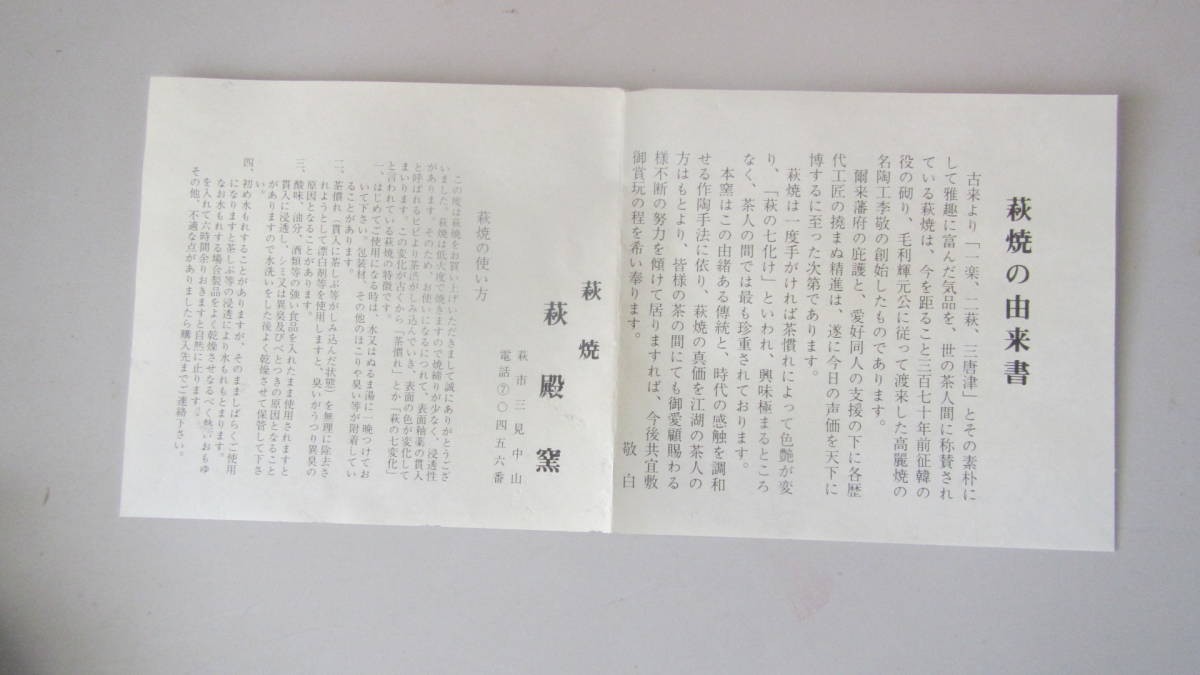 萩焼の由来書
古来より「一楽、二萩、三唐津」とその素朴に
して雅趣に富んだ気品を、世の茶人間に称賛され
ている萩焼は、今を距ること三百七十年前征韓の
役の砌り、毛利輝元公に従って渡来した高麗焼の
名陶工李敬の創始したものであります。
爾来藩府の庇護と、愛好同人の支援の下に各歴
代工匠の撓まぬ精進は、遂に今日の声価を天下に
博するに至った次第であります。
萩焼は一度手がければ茶慣れによって色艶が変
り、「萩の七化け」といわれ、興味極まるところ
なく、茶人の間では最も珍重されております。
本窯はこの由緒ある傳統と、時代の感触を調和
せる作陶手法に依り、萩焼の真価を江湖の茶人の
方はもとより、皆様の茶の間にても御愛顧賜わる
様不断の努力を傾けて居りますれば、今後共宜敷
御賞玩の程を希い奉ります。
敬白
萩焼
萩殿窯
萩市三見中山
電話②〇四五六番
萩焼の使い方
この度は萩焼をお買い上げいただきまして誠にありがとうござ
いました。萩焼は低火度で焼きますので焼締りが少なく、浸透性
があります。そのため、お使いになるにつれて、表面釉薬の貫入
と呼ばれるヒビより茶渋がしみ込んでいき、表面の色が変化して
まいります。この変化が古くから「茶慣れ」とか「萩の七変化」
と言われている萩焼の特徴です。
一、はじめてご使用になる時は、水又はぬるま湯に一晩つけてお
いて下さい。包装材、その他のほこりや臭い等が附着してい
ることがあります。
二、茶慣れ（貫入に茶しぶ等がしみ込んだ状態）を無理に除去さ
れようとして漂白剤等を使用しますと、臭いがうつり異臭の
原因となることがあります。
三、酸味、油分、酒類等の強い食品を入れたまま使用されますと
貫入に浸透し、シミ又は異臭及びべとつきの原因となること
がありますので水洗いをした後よく乾燥させて保管して下さ
い。
四、初め水もれすることがありますが、そのまましばらくご使用
になりますと茶しぶ等の浸透により水もれもとまります。
なお水もれする場合製品をよく乾燥させなるべく熱いおもゆ
を入れて六時間余りおきますと自然に止ります。
その他、不適な点がありましたら購入先までご連絡下さい。